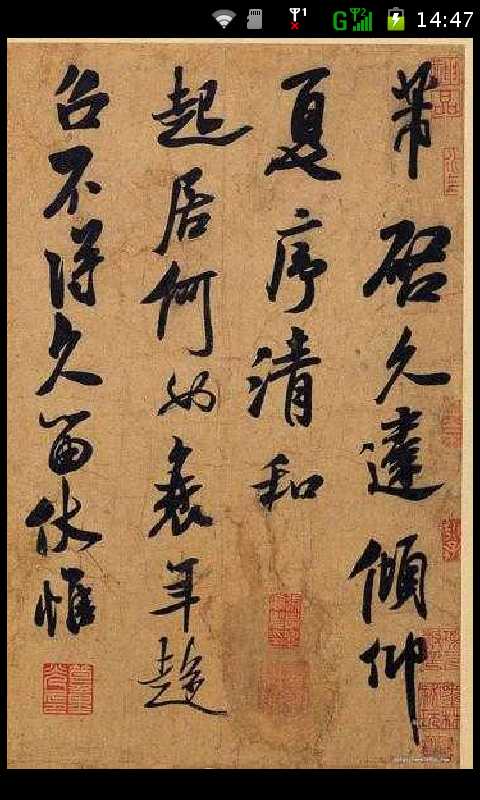 14:47
芾啓久違傾仰
夏序清和
起居何如衰年趍
召不得久留伏惟